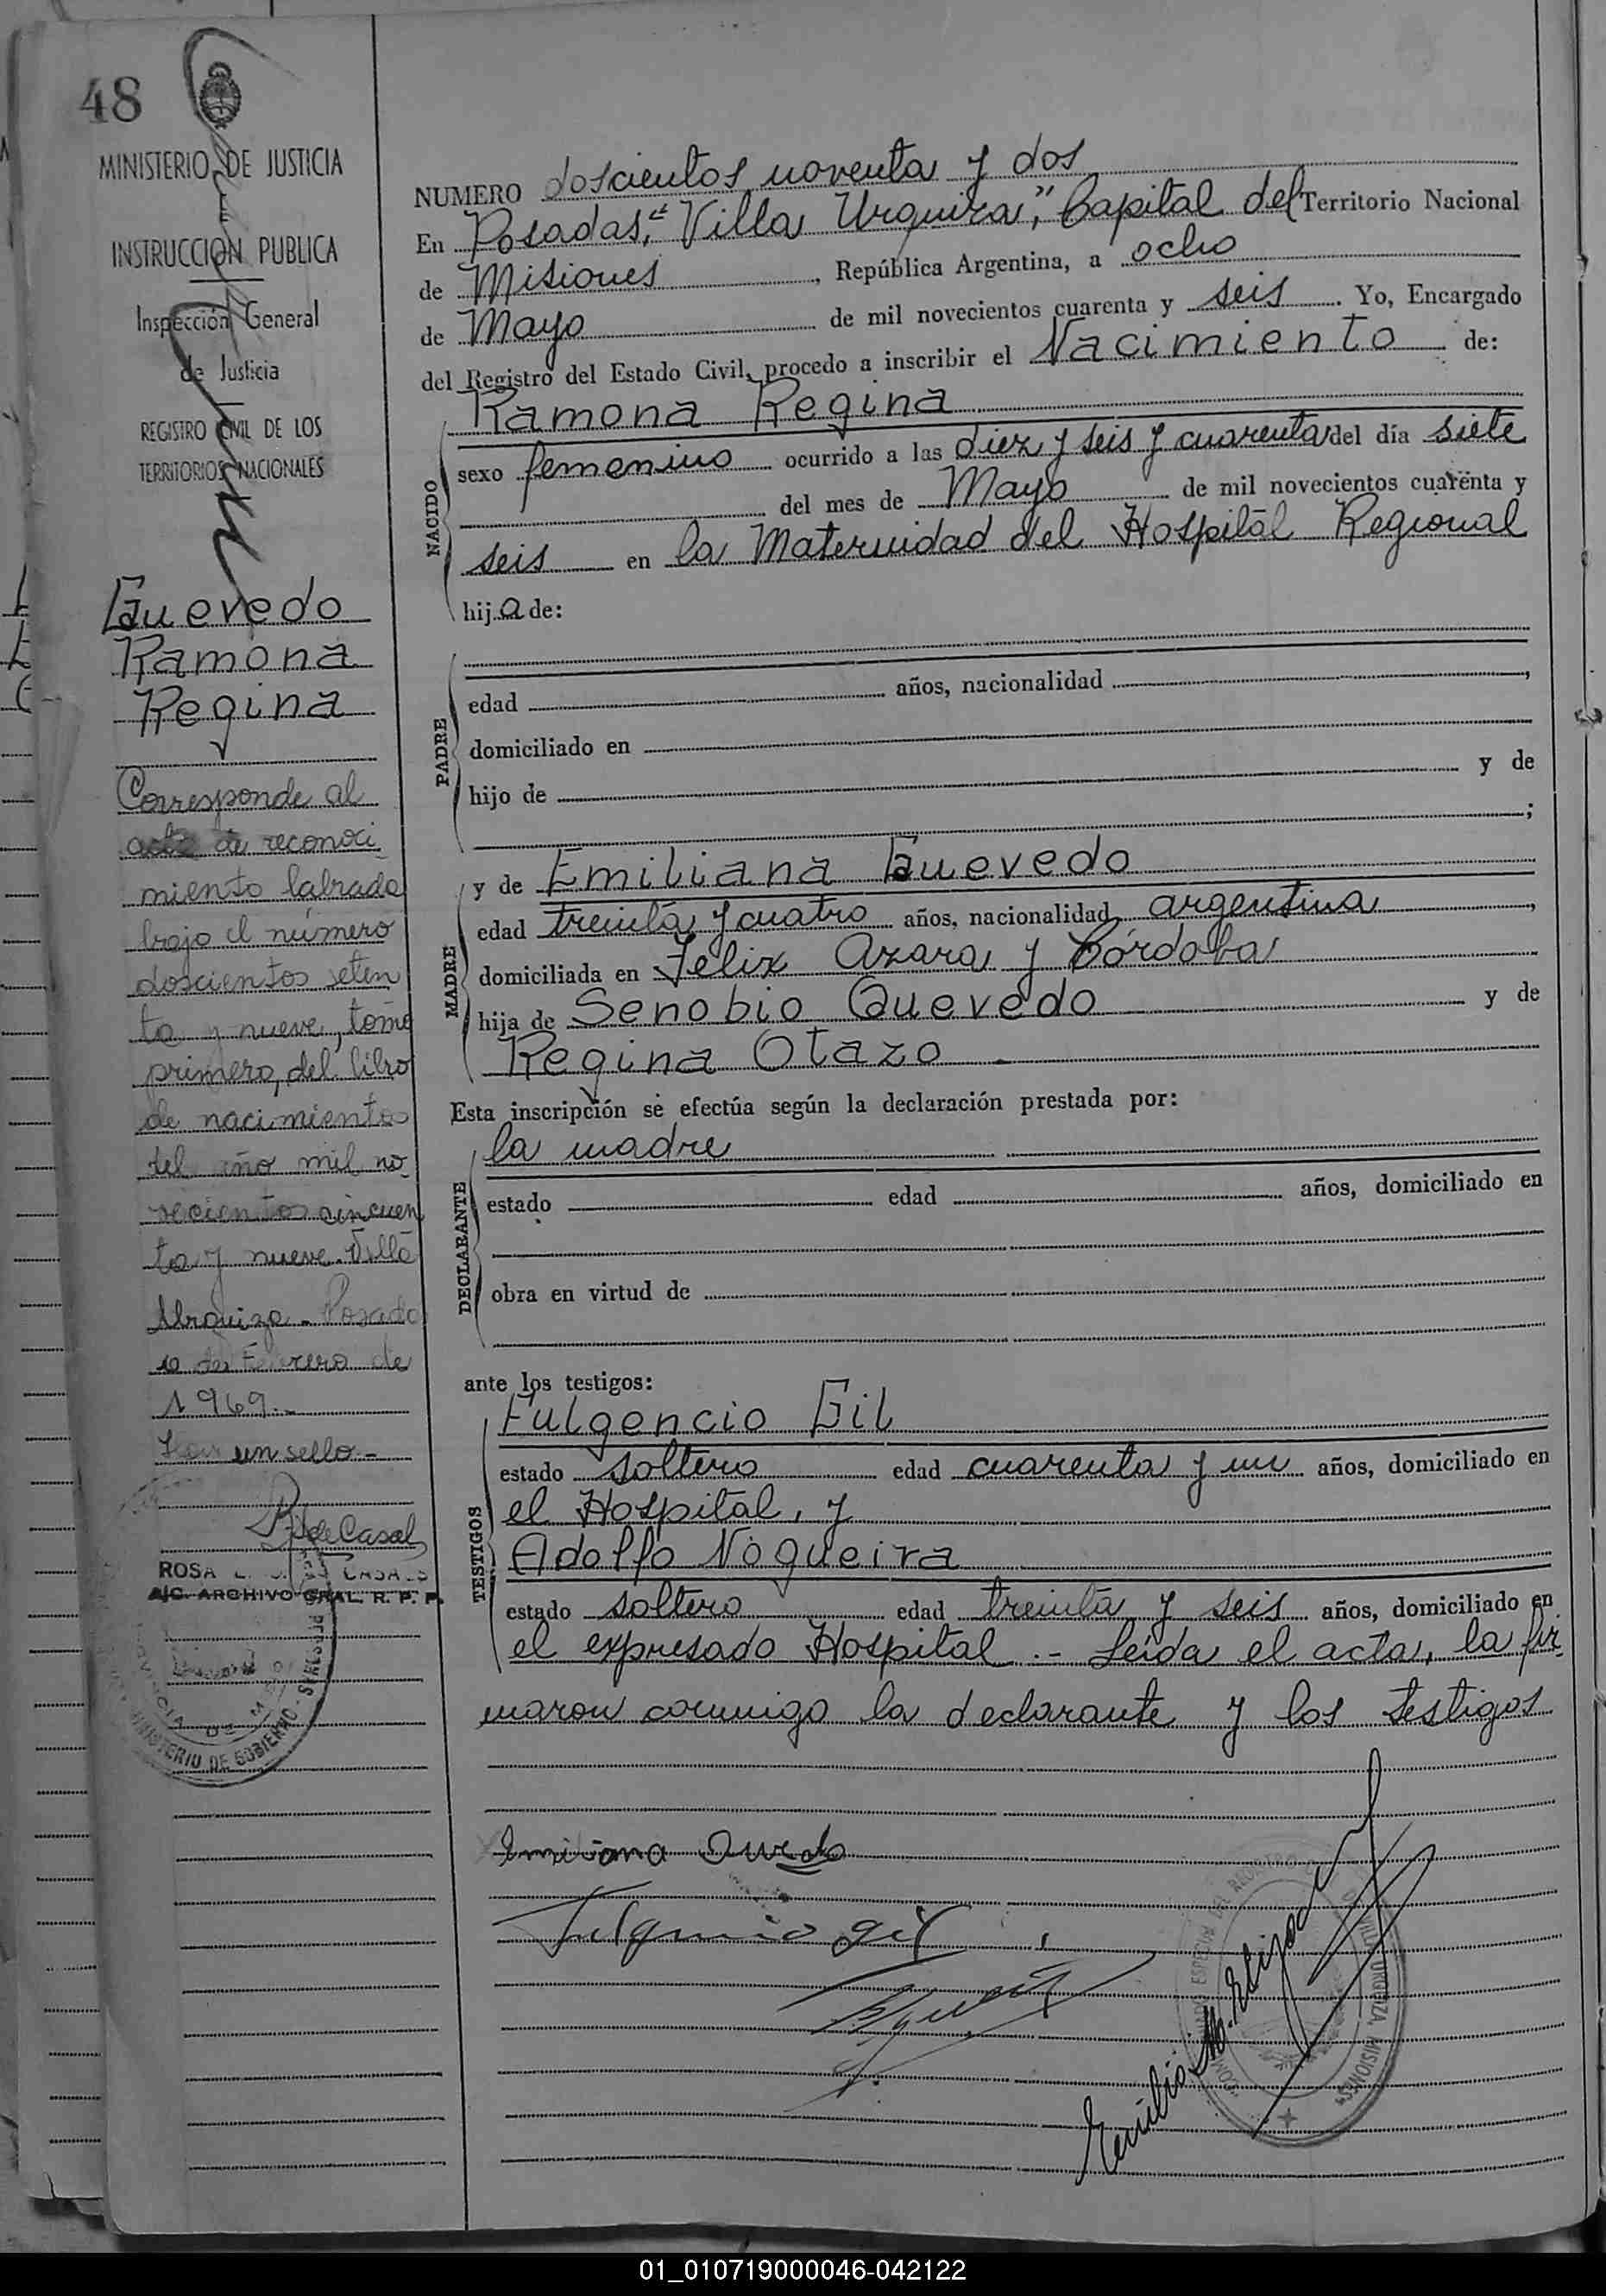 48
MINISTERIO DE JUSTICIA
E
INSTRUCCION PUBLICA
Inspección General
de Justicia
REGISTRO CIVIL DE LOS
TERRITORIOS NACIONALES
Quevedo
Ramona
Regina
Corresponde al
acta de reconoci
miento labrada
bajo el número
doscientos seten
ta y nueve, tomo
primero, del libro
de nacimientos
del año mil no
vecientos cincuen
ta y nueve. Villa
Urquiza - Posadas
10 de Febrero de
1969.-
Hay un sello.-
ROSA CASALS
A/C. ARCHIVO GRAL. R. P. P.
MINISTERIO DE GOBIERNO
NUMERO doscientos noventa y dos
En Posadas, "Villa Urquiza", Capital del Territorio Nacional
de Misiones, República Argentina, a ocho
de Mayo de mil novecientos cuarenta y seis. Yo, Encargado
del Registro del Estado Civil, procedo a inscribir el Nacimiento de:
NACIDO
Ramona Regina
sexo femenino ocurrido a las diez y seis y cuarenta del día siete
del mes de Mayo de mil novecientos cuarenta y
seis en la Maternidad del Hospital Regional
hija de:
PADRE
edad años, nacionalidad ,
domiciliado en
hijo de y de
;
MADRE
y de Emiliana Quevedo
edad treinta y cuatro años, nacionalidad argentina,
domiciliada en Felix Azara y Córdoba
hija de Senobio Quevedo y de
Regina Otazo
Esta inscripción se efectúa según la declaración prestada por:
DECLARANTE
la madre
estado edad años, domiciliado en
obra en virtud de
ante los testigos:
TESTIGOS
Fulgencio Gil
estado soltero edad cuarenta y un años, domiciliado en
el Hospital, y
Adolfo Nogueira
estado soltero edad treinta y seis años, domiciliado en
el expresado Hospital.- Leída el acta, la fir
maron conmigo la declarante y los testigos
Emiliana Quvedo
Fulgencio gil
URQUIZA, MISIONES
01_010719000046-042122